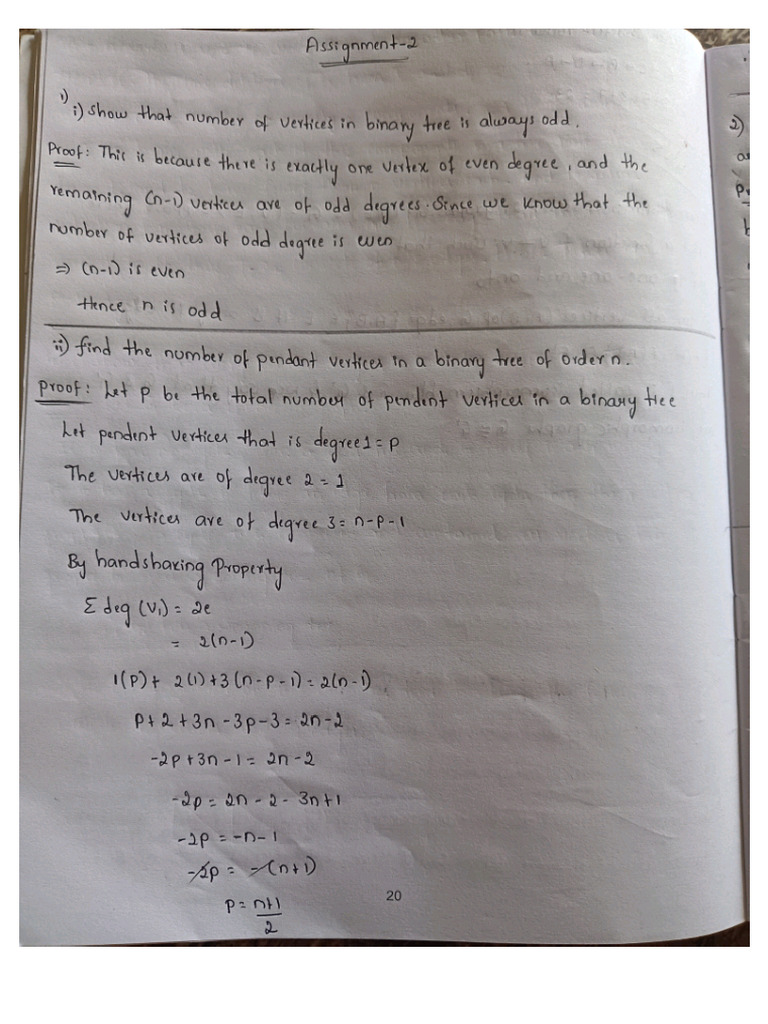 Assignment-2
1)
i) show that number of vertices in binary tree is always odd.
Proof: This is because there is exactly one vertex of even degree, and the
remaining (n-1) vertices are of odd degrees. Since we know that the
number of vertices of odd degree is even
⇒ (n-1) is even
Hence n is odd
ii) find the number of pendant vertices in a binary tree of order n.
Proof: Let P be the total number of pendent vertices in a binary tree
Let pendent vertices that is degree 1 = P
The vertices are of degree 2 = 1
The vertices are of degree 3 = n-p-1
By handshaking Property
Σ deg (Vi) = 2e
= 2(n-1)
1(P) + 2(1) + 3(n-p-1) = 2(n-1)
P + 2 + 3n - 3p - 3 = 2n - 2
-2p + 3n - 1 = 2n - 2
-2p = 2n - 2 - 3n + 1
-2p = -n - 1
-2p = -(n+1)
P = n+1
2
20
2)